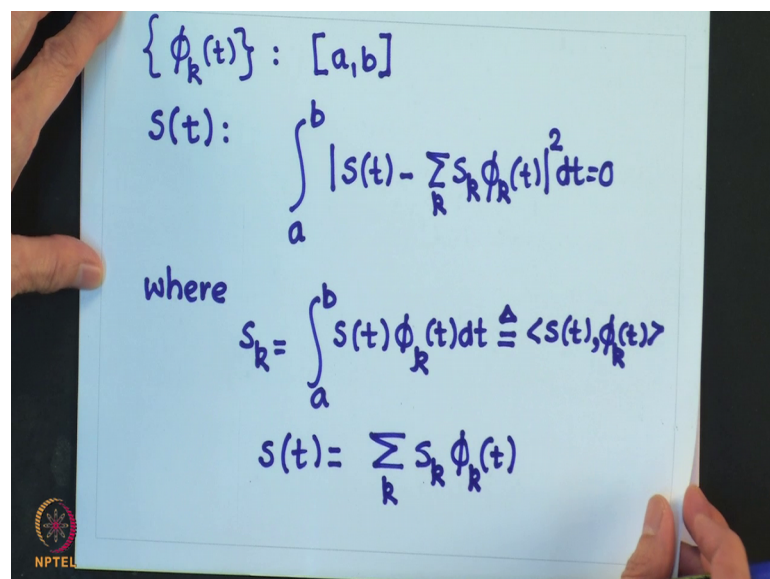 {ϕₖ(t)} : [a,b]
S(t) : ∫ₐᵇ |S(t) - Σₖ Sₖ ϕₖ(t)|² dt = 0
where
Sₖ = ∫ₐᵇ S(t) ϕₖ(t) dt ≜ <S(t), ϕₖ(t)>
S(t) = Σₖ Sₖ ϕₖ(t)
NPTEL